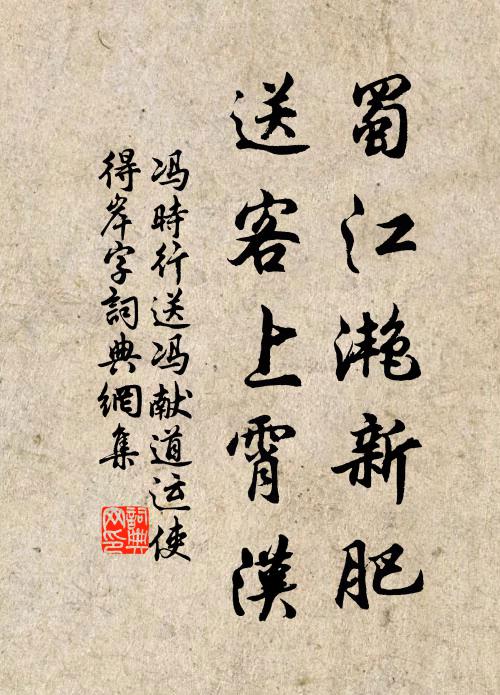 蜀江滟新肥
送客上霄漢
冯時行送冯献道运使
得岸字詞典網集
詞典网印